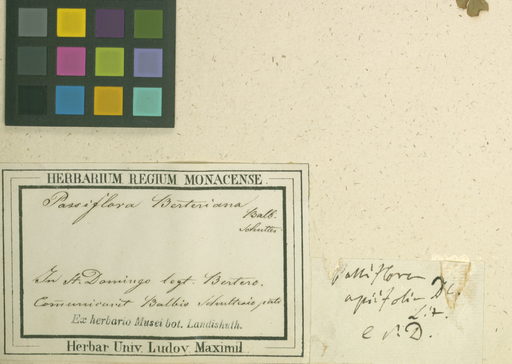 HERBARIUM REGIUM MONACENSE.
Passiflora Berteriana
Balb.
Schultes
In St. Domingo legt. Bertero.
Communicavit Balbis Schultesio,
Ex herbario Musei bot. Landishuth.
Herbar Univ. Ludov. Maximil
passiflora
apiifolia DC.
e S. D.